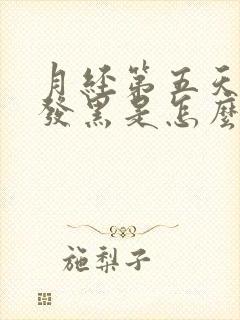 月经第五天
發黑是怎麼
施梨子